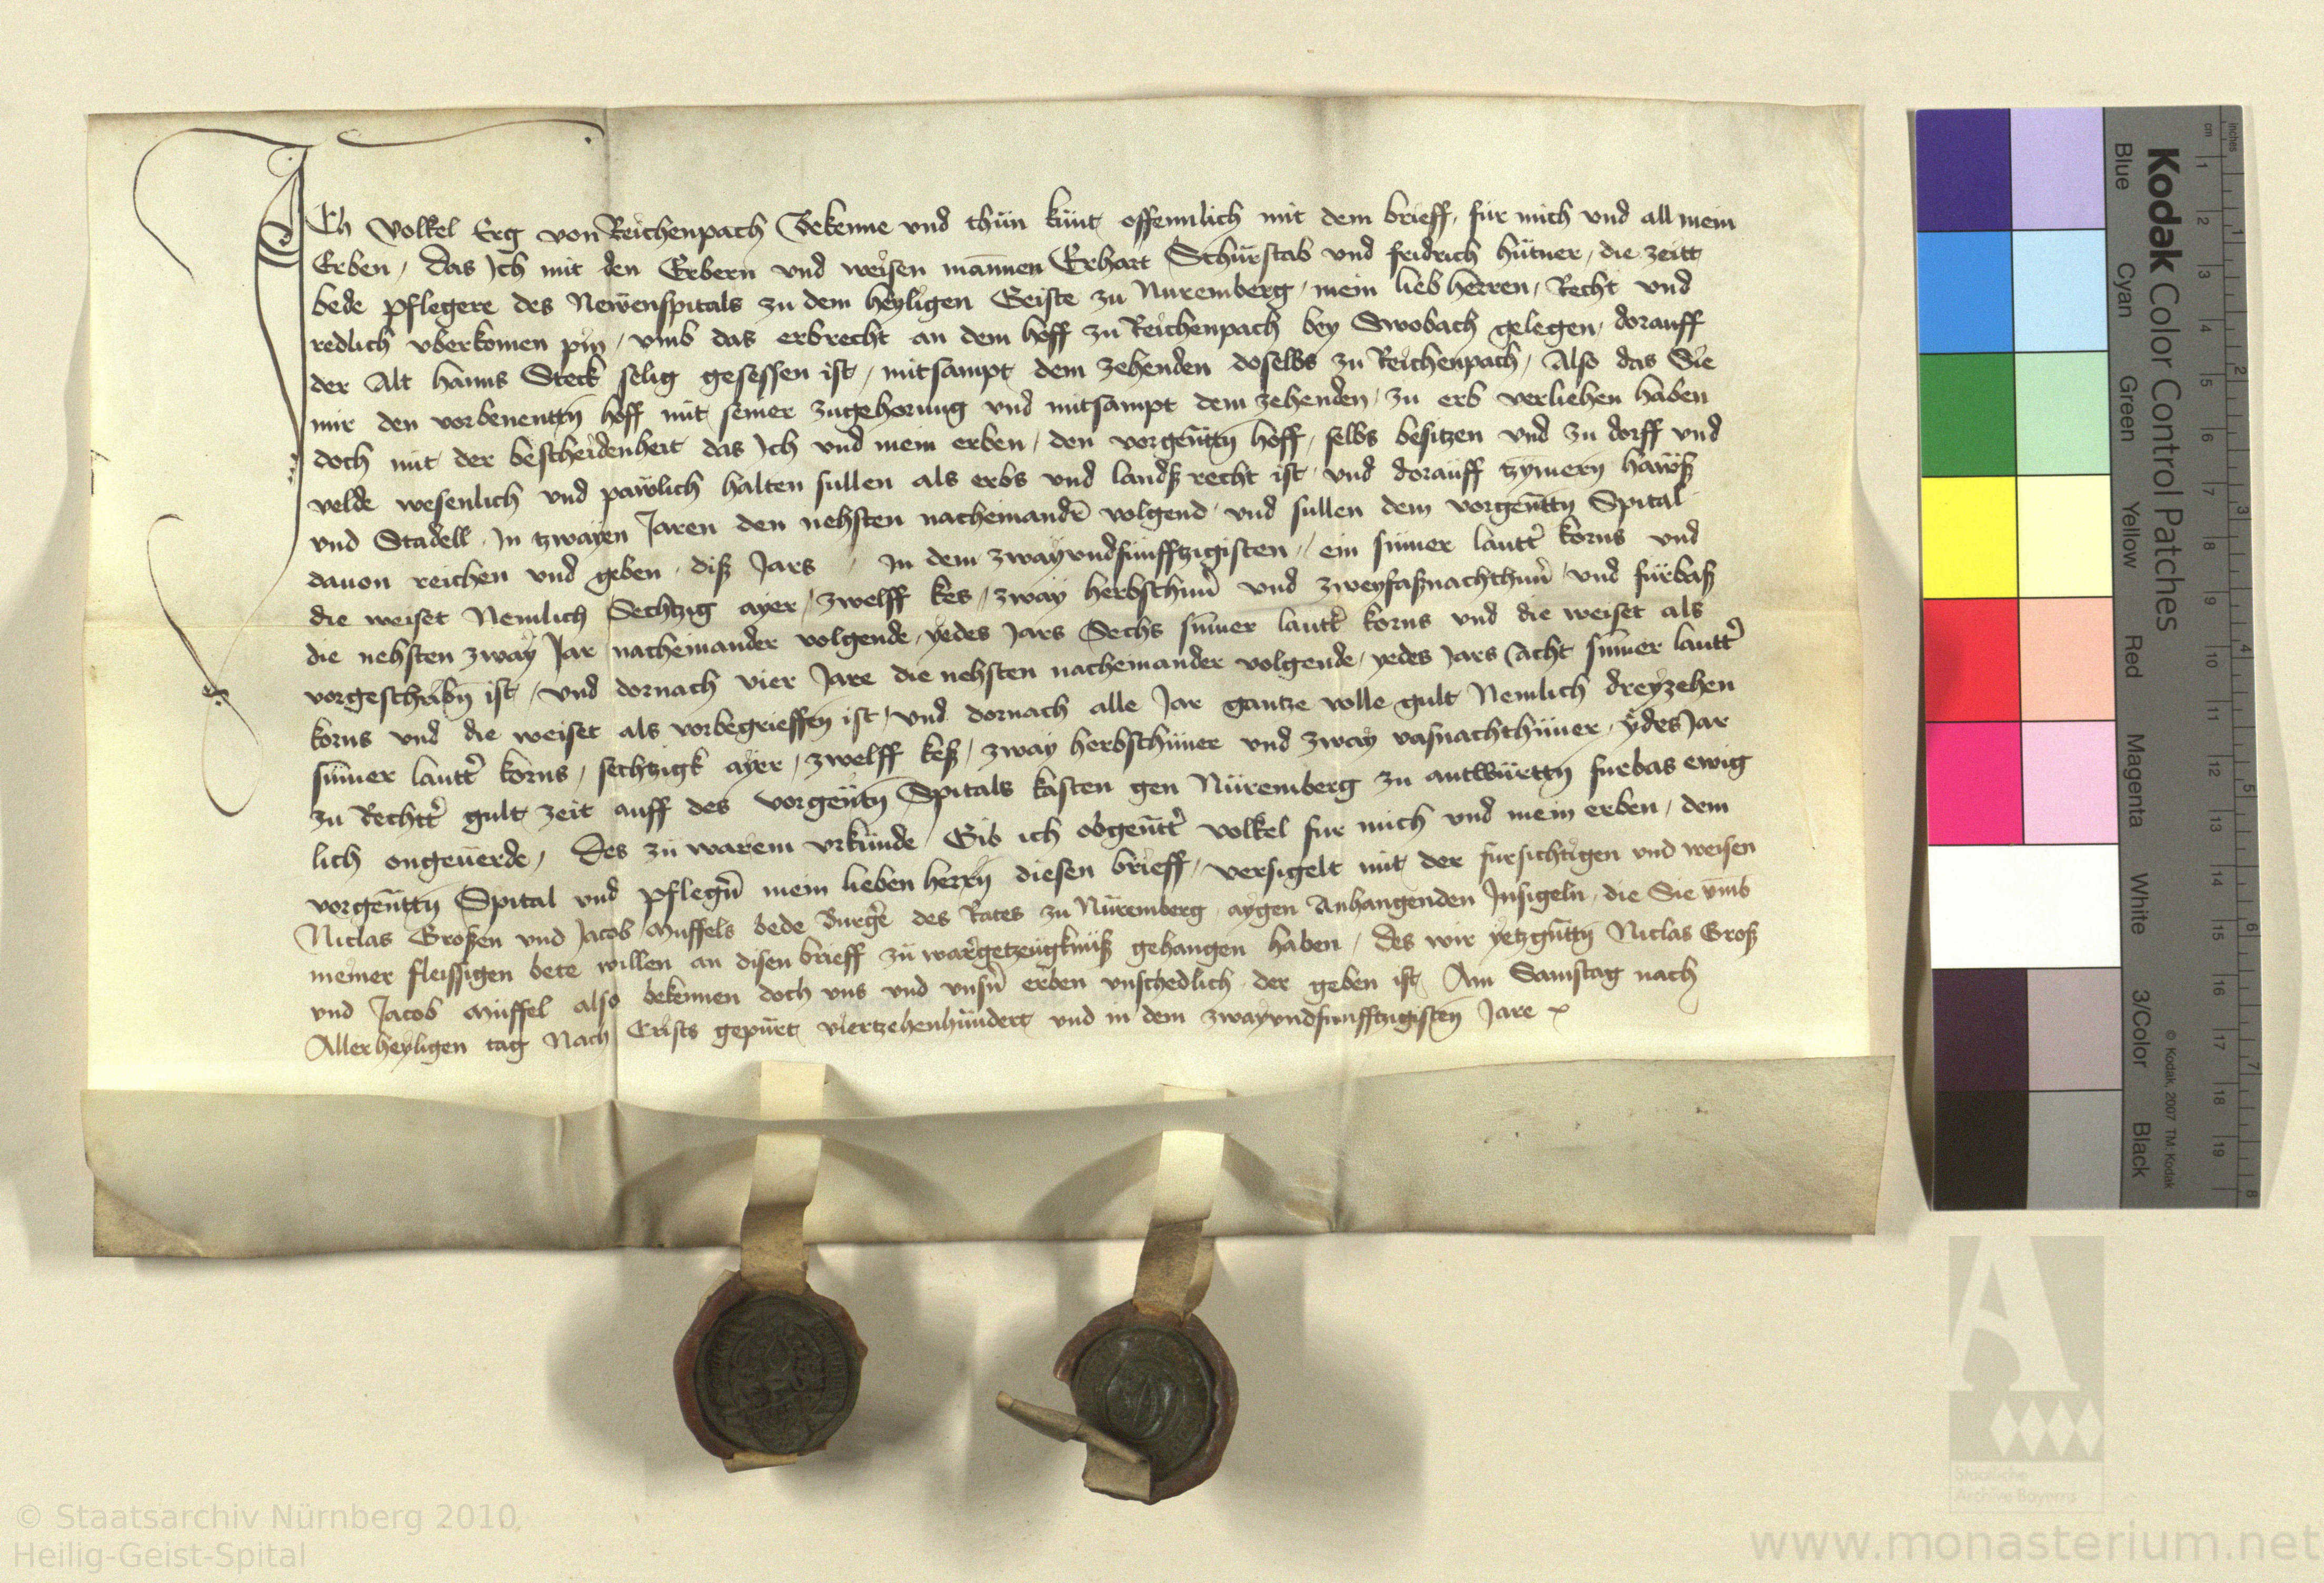 ICh Volkel Erg von Reichenpach Bekenne vnd thün künt offennlich mit dem brieff, für mich vnd all mein
Erben, das Ich mit den Erbern vnd weisen mannen Erhart Schürstab vnd fridrich hütner, die zeitt
bede pflegere des Newenspitals zu dem heyligen Geiste zu Nuremberg, mein lieb herren, Recht vnd
redlich vberkomen pin, vmb das erbrecht an dem hoff zu Reichenpach bey Swobach gelegen, dorauff
der Alt hanns Steck selig gesessen ist, mitsampt dem zehenden doselbs zu Reichenpach, Also das Sie
mir den vorbenenttn̄ hoff mit seiner zugehorung vnd mitsampt dem zehenden, zu erb verliehen haben
doch mit der bescheidenheit das Ich vnd mein erben, den vorgen̄ttn̄ hoff, selbs besitzen vnd zu dorff vnd
velde wesenlich vnd pawlich halten sullen als erbs vnd landsß recht ist, vnd dorauff tzymern̄ hawß
vnd Stadell, In tzwayen Jaren den nehsten nacheinandr̄ volgend, vnd sullen dem vorgen̄ttn̄ Spital
dauon reichen vnd geben, diß Jars, In dem zwayvndfünfftzigisten, ein sumer lautt̉ korns vnd
die weiset Nemlich Sechtzig ayer, zwelff kes, zway herbschun̉ vnd zweyfaßnachthun̉, vnd fürbaß
die nehsten zway Jar nacheinander volgende, yedes Jars Sechs sumer lautt̉ korns vnd die weiset als
vorgeschribn̄ ist, vnd dornach vier Jare die nehsten nacheinander volgende, yedes Jars Acht sumer lautt̉
korns vnd die weiset als vorbegrieffen ist, vnd dornach alle Jar gantze volle gult Nemlich dreyzehen
sumer lautt̉ korns, sechtzigk ayer, zwelff keß, zway herbschüner vnd zway vasnachthüner, ydes Jar
zu Rechtt̉ gult zeit auff des vorgen̄tn̄ Spitals kasten gen Nüremberg zu antwürttn̄ furbas ewig
lich ongeuerde, Des zu warem vrkünde Gib ich obgen̄tt̉ volkel fur mich vnd mein erben, dem
vorgen̄ttn̄ Spital vnd pflegn̉ mein lieben herrn̄ diesen brieff, versigelt mit der fursichtigen vnd weisen
Niclas Großen vnd Jacob Muffels bede Burgr̉ des Rates zu Nüremberg, aygen Anhangenden Insigeln, die Sie vmb
meiner fleissigen bete willen an disen brieff zü war̉getzeugknüß gehangen haben, Des wir yetzgn̄ttn̄ Niclas Groß
vnd Jacob Muffel also bekennen doch vns vnd vnsn̉ erben vnschedlich, der geben ist Am Samstag nach
Allerheyligen tag Nach Crists gepürt viertzehenhündert vnd in dem zwayvndfunfftzigisten̄ Jare
Kodak Color Control Patches
Blue Cyan Green Yellow Red Magenta White 3/Color Black
© Kodak, 2007 TM: Kodak
cm 1 2 3 4 5 6 7 8 9 10 11 12 13 14 15 16 17 18 19
inches 1 2 3 4 5 6 7 8
Staatliche
Archive Bayerns
© Staatsarchiv Nürnberg 2010,
Heilig-Geist-Spital
www.monasterium.net